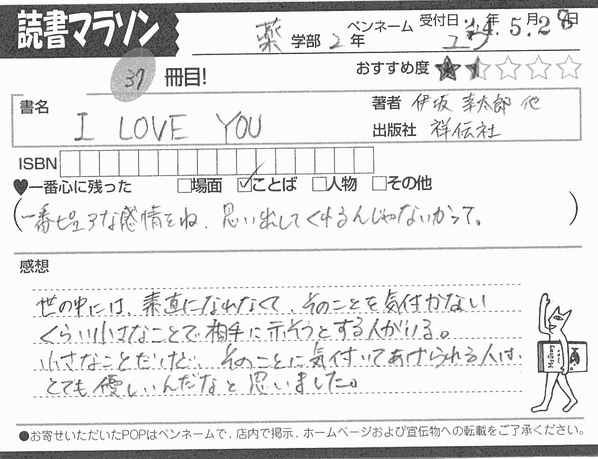 読書マラソン
薬 学部 2 年 ペンネーム ユウ 受付日 14年5月28日
37 冊目! おすすめ度 ★☆☆☆☆
書名 I LOVE YOU
著者 伊坂 幸太郎 他
出版社 祥伝社
ISBN
♥一番心に残った □場面 ☑ことば □人物 □その他
(一番ピュアな感情をね、思い出してくれるんじゃないかって。)
感想
世の中には、素直になれなくて、そのことを気付かない
くらい小さなことで相手に示そうとする人がいる。
小さなことだけど、そのことに気付いてあげられる人は、
とても優しいんだなと思いました。
●お寄せいただいたPOPはペンネームで、店内で掲示、ホームページおよび宣伝物への転載をご了承ください。